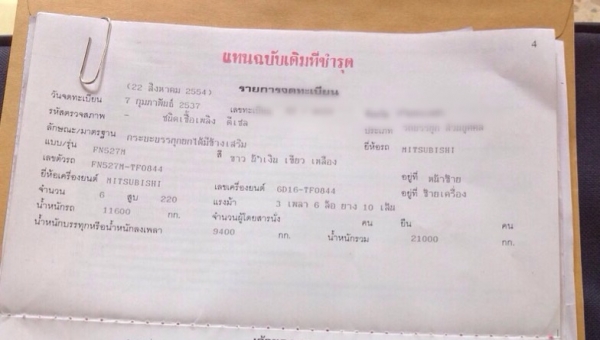 4
แทนฉบับเดิมที่ชำรุด
(22 สิงหาคม 2554) รายการจดทะเบียน
วันจดทะเบียน 7 กุมภาพันธ์ 2537 เลขทะเบียน
รหัสตรวจสภาพ - ชนิดเชื้อเพลิง ดีเซล ประเภท
ลักษณะ/มาตรฐาน กระบะบรรทุกยกได้มีข้างเสริม ยี่ห้อรถ MITSUBISHI
แบบ/รุ่น FN527M สี ขาว เงิน เขียว เหลือง
เลขตัวรถ FN527M-TF0844 อยู่ที่ หน้าซ้าย
ยี่ห้อเครื่องยนต์ MITSUBISHI เลขเครื่องยนต์ GD16-TF0844 อยู่ที่ ซ้ายเครื่อง
จำนวน 6 สูบ 220 แรงม้า 3 เพลา 6 ล้อ ยาง 10 เส้น
น้ำหนักรถ 11600 กก. จำนวนผู้โดยสารนั่ง คน ยืน คน
น้ำหนักบรรทุกหรือน้ำหนักลงเพลา 9400 กก. น้ำหนักรวม 21000 กก.